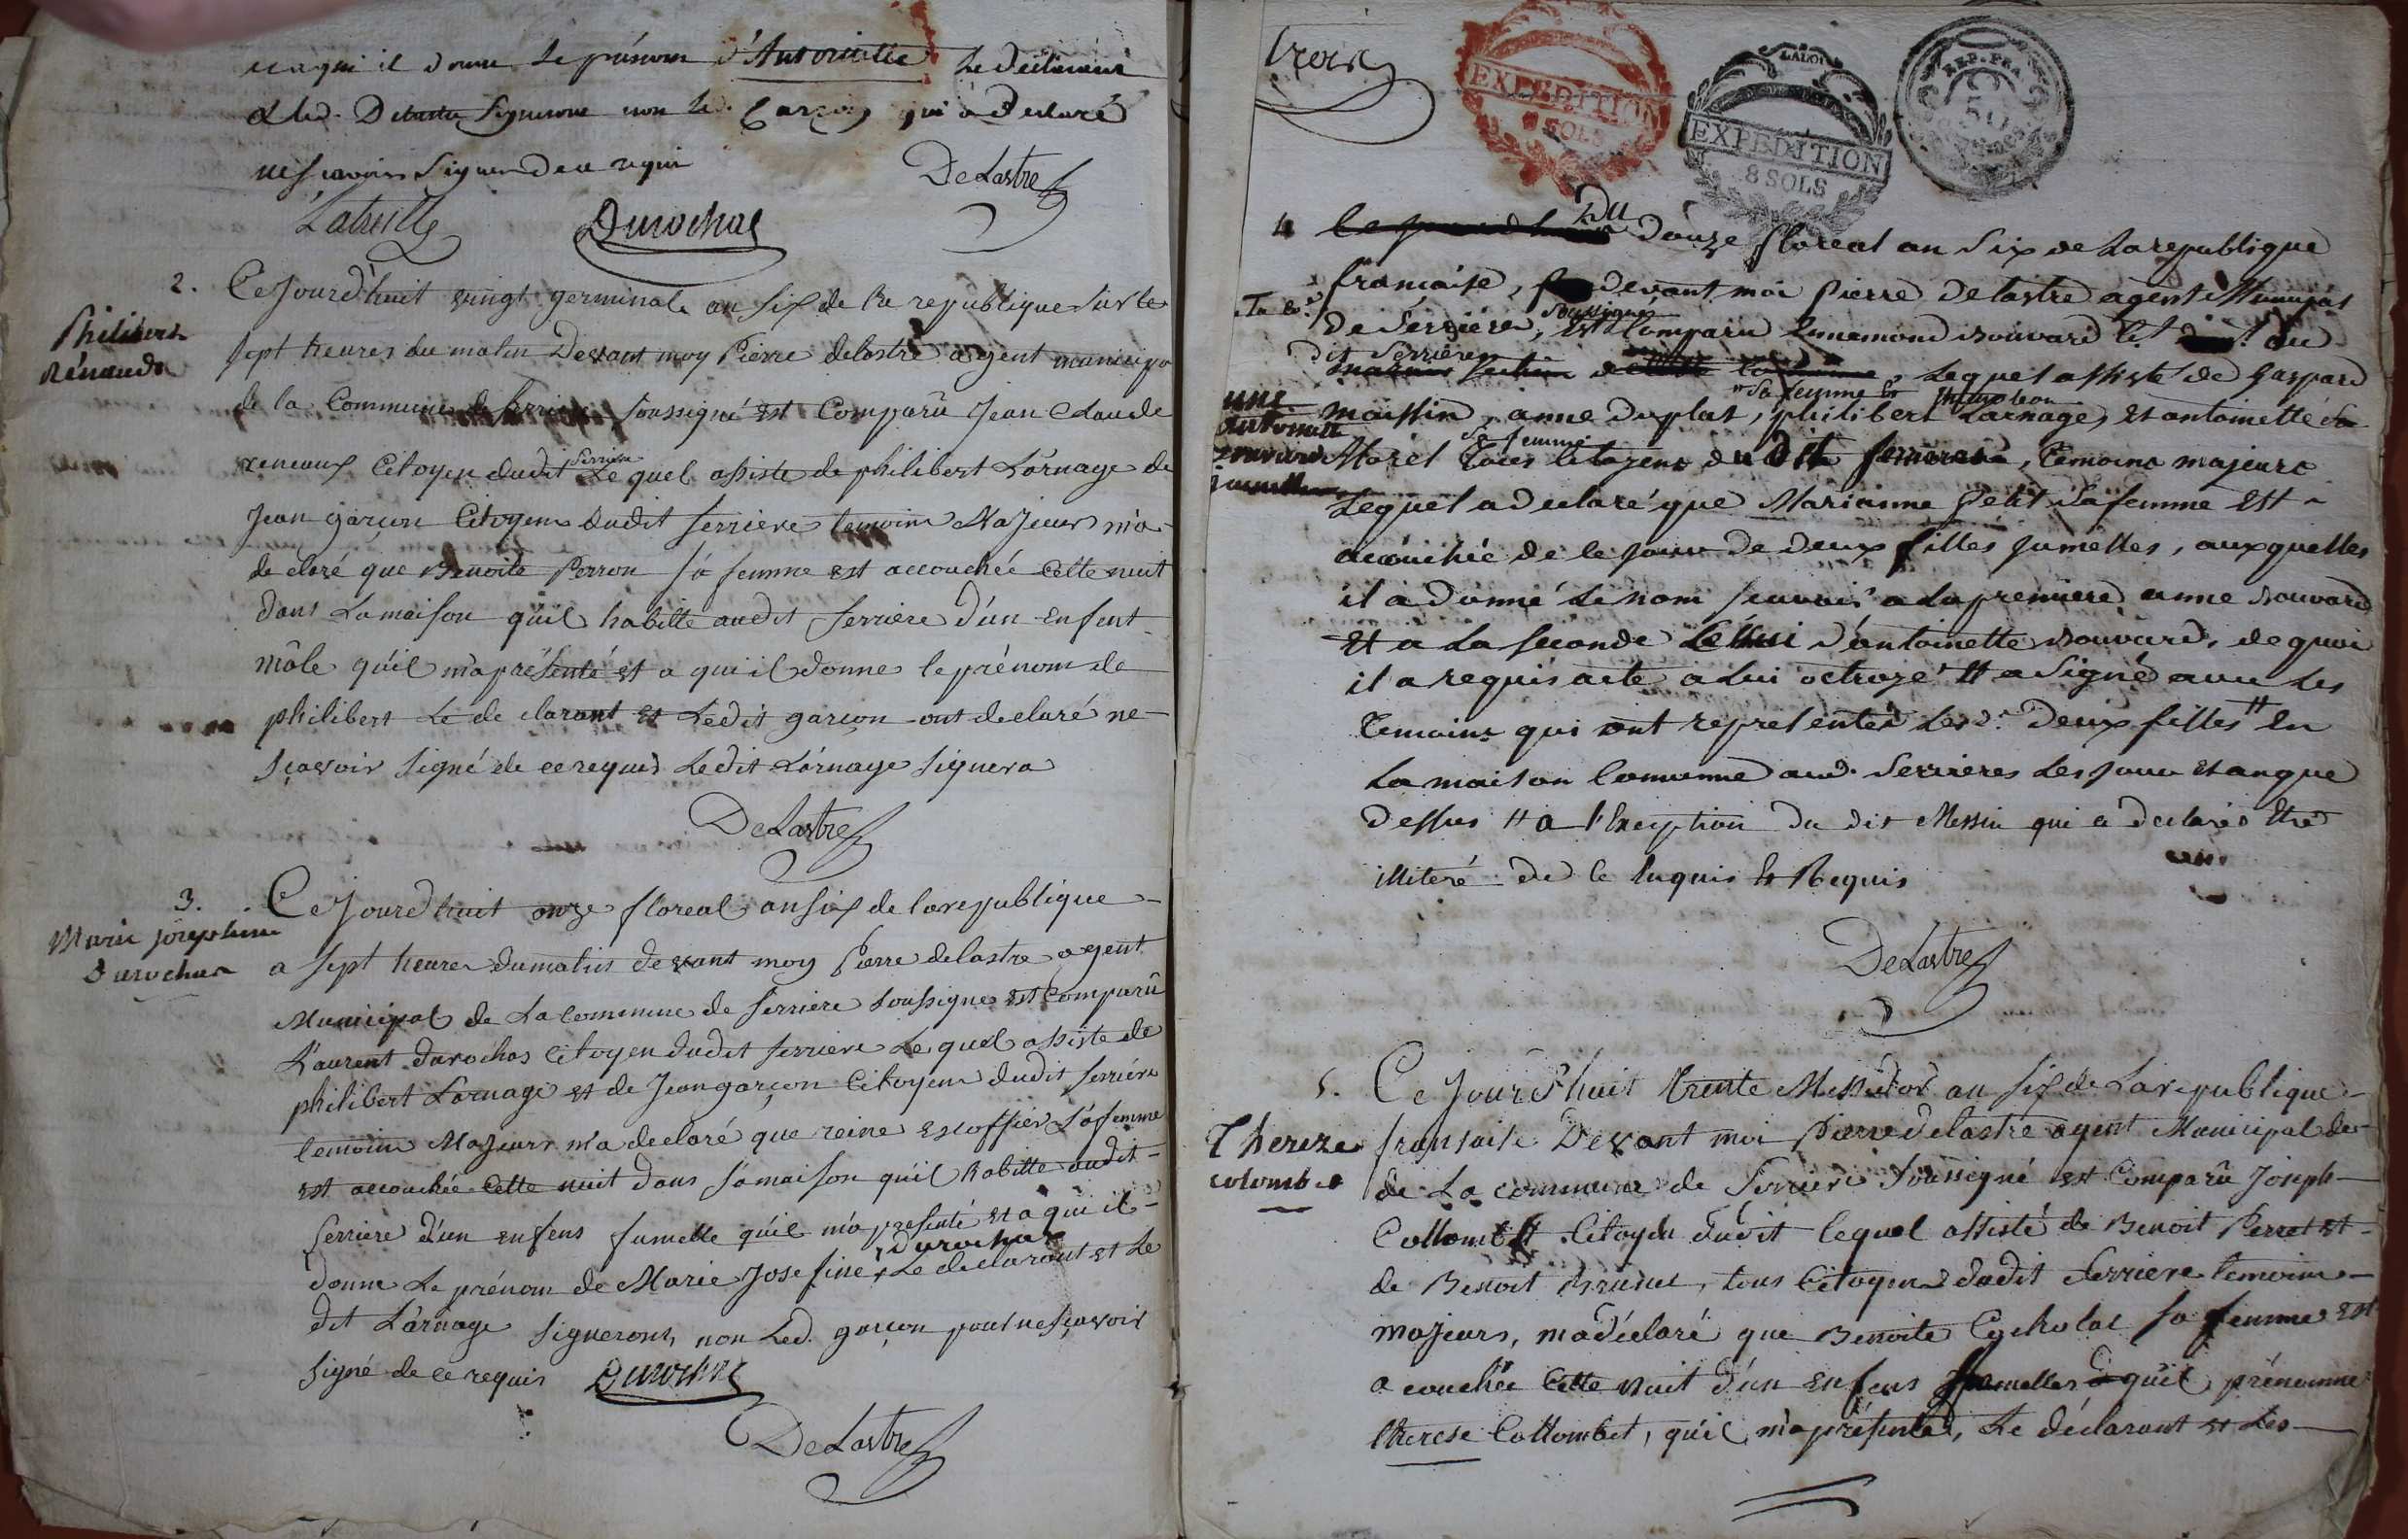 a qui il donne le prénom d'Antoinette le déclarant
& led. Delastre Signeront non led. Garçon qui a déclaré
ne scavoir Signer de ce requi
DeLastre
Latreille
Durochas
2.
Philibert
Renaud
Ce Jourd'huit vingt germinal an six de la republique sur les
sept heures du matin Devant moy Pierre delastre agent municipa
de la Commune de serriere soussigné est Comparû Jean Claude
reneaux Citoyen dudit Serriere Le quel assiste de philibert Lornage de
Jean garçon Citoyens dudit serriere temoins Majeurs m'a
declaré que Benoite Perron sa femme est accouchée cette nuit
dans La maison qu'il habitte audit serriere d'un enfent
mâle qu'il m'a présenté et a qui il donne le prénom de
philibert Le de clarant et Ledit garçon ont declaré ne
sçavoir signé de ce requis Ledit Lornage signera
DeLastre
3.
Marie josephine
Durochas
Ce Jourd'huit onze floreal an six de la republique
a sept heures du matin devant moy Pierre delastre agent
Municipal de La commune de serriere soussigné est Comparû
Laurent durochas Citoyen dudit serriere Le quel assiste de
philibert Lornage et de Jean garçon Citoyens dudit serriere
temoins Majeurs m'a declaré que reine escoffier sa femme
est accouchée cette nuit dans sa maison qu'il habitte audit
serriere d'un enfens fumelle qu'il m'a presenté et a qui il
durochas
donne Le prénom de Marie Josefine Le declarant et Le
dit Lornage signerons, non Led. garçon pour ne sçavoir
signé de ce requis Durochas
DeLastre
trois
EXPEDITION
8 SOLS
LA LOI
EXPEDITION
8 SOLS
REP. FRA.
4
Du douze floreal an six de la republique
francaise, devant moi Pierre delastre agent Municipal
de Serriere, Soussigné est Comparu Ennemond Bouvard Cit. du
dit Serriere, Lequel assisté de Gaspard
sa femme
maissin, anne duplat, philibert Lornage, et antoinette
anne
antoinette
bouvard
jumelles
sa femme
Morel tous Citoyens dudit serriere, temoins majeurs
Lequel a declaré que Marianne Petit sa femme est
acouchée de ce jour de deux filles jumelles, auxquelles
il a donné le nom scavoir a la premiere anne Bouvard
et a la seconde Celui d'antoinette Bouvard, de quoi
il a requis acte a lui octroyé et a signé avec les
temoins qui ont representés lesd. deux filles en
la maison Commune aud. Serrieres les jour et an que
dessus a l'exception du dit Messin qui a declaré être
illiteré de ce enquis et Requis
DeLastre
5.
Thereze
colombet
Ce Jourd'huit trente Messidor an six de La republique
fransaise Devant moi Pierre delastre agent Municipal de
de La commune de Serriere Soussigné est Comparû Joseph
Collombet Citoyen dudit lequel assisté de Benoit Perret et
de Benoit Brunet, tous Citoyens dudit Serriere temoins
majeurs, m'a déclaré que Benoite Cocholat sa femme est
acouchée Cette nuit d'un enfens fumelles qu'il prénomme
therese Collombet, qu'il m'a présenté, Le déclarant et Les